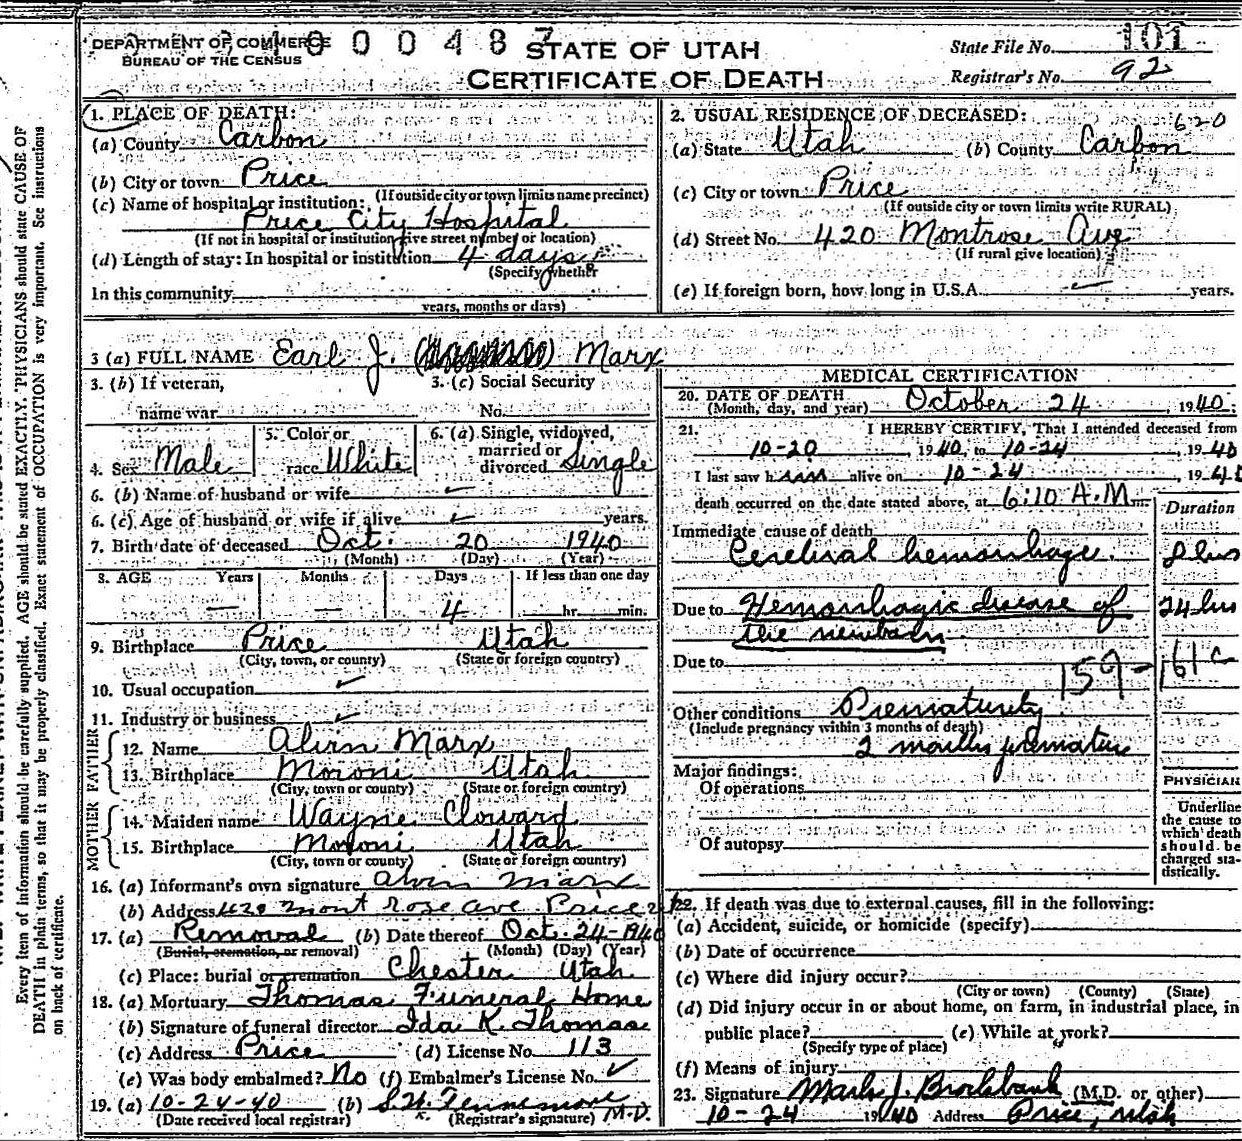 1000487
DEPARTMENT OF COMMERCE
BUREAU OF THE CENSUS
STATE OF UTAH
CERTIFICATE OF DEATH
State File No. 101
Registrar's No. 92
1. PLACE OF DEATH:
(a) County Carbon
(b) City or town Price
(If outside city or town limits name precinct)
(c) Name of hospital or institution:
Price City Hospital
(If not in hospital or institution give street number or location)
(d) Length of stay: In hospital or institution 4 days
(Specify whether
In this community
years, months or days)
2. USUAL RESIDENCE OF DECEASED: 620
(a) State Utah (b) County Carbon
(c) City or town Price
(If outside city or town limits write RURAL)
(d) Street No. 420 Montrose Ave
(If rural give location)
(e) If foreign born, how long in U.S.A. years.
3 (a) FULL NAME Earl J. Marx
3. (b) If veteran,
name war
3. (c) Social Security
No.
4. Sex Male
5. Color or
race White
6. (a) Single, widowed,
married or
divorced Single
6. (b) Name of husband or wife
6. (c) Age of husband or wife if alive years.
7. Birth date of deceased Oct. 20 1940
(Month) (Day) (Year)
8. AGE Years Months Days If less than one day
— — 4 hr. min.
9. Birthplace Price Utah
(City, town, or county) (State or foreign country)
10. Usual occupation ✓
11. Industry or business ✓
FATHER
12. Name Alvin Marx
13. Birthplace Moroni Utah
(City, town or county) (State or foreign country)
MOTHER
14. Maiden name Wayne Cloward
15. Birthplace Moroni Utah
(City, town or county) (State or foreign country)
16. (a) Informant's own signature Alvin Marx
(b) Address 420 Mont rose ave Price
17. (a) Removal (b) Date thereof Oct. 24-1940
(Burial, cremation, or removal) (Month) (Day) (Year)
(c) Place: burial or cremation Chester Utah
18. (a) Mortuary Thomas Funeral Home
(b) Signature of funeral director Ida K. Thomas
(c) Address Price (d) License No. 113
(e) Was body embalmed? No (f) Embalmer's License No. ✓
19. (a) 10-24-40 (b) M.D.
(Date received local registrar) (Registrar's signature)
MEDICAL CERTIFICATION
20. DATE OF DEATH
(Month, day, and year) October 24, 1940
21. I HEREBY CERTIFY, That I attended deceased from
10-20, 1940, to 10-24, 1940
I last saw him alive on 10-24, 1940
death occurred on the date stated above, at 6:10 A.M.
Duration
Immediate cause of death
Cerebral hemorrhage
Due to Hemorrhagic disease of 24 hrs
the newborn
Due to
159-161c
Other conditions Prematurity
(Include pregnancy within 3 months of death)
2 months premature
Major findings:
Of operations
Of autopsy
PHYSICIAN
Underline
the cause to
which death
should be
charged sta-
tistically.
22. If death was due to external causes, fill in the following:
(a) Accident, suicide, or homicide (specify)
(b) Date of occurrence
(c) Where did injury occur?
(City or town) (County) (State)
(d) Did injury occur in or about home, on farm, in industrial place, in
public place? (e) While at work?
(Specify type of place)
(f) Means of injury
23. Signature Mark J. Brockbank (M.D. or other)
10-24 1940 Address Price, Utah
Every item of information should be carefully supplied. AGE should be stated EXACTLY. PHYSICIANS should state CAUSE OF
DEATH in plain terms, so that it may be properly classified. Exact statement of OCCUPATION is very important. See instructions
on back of certificate.